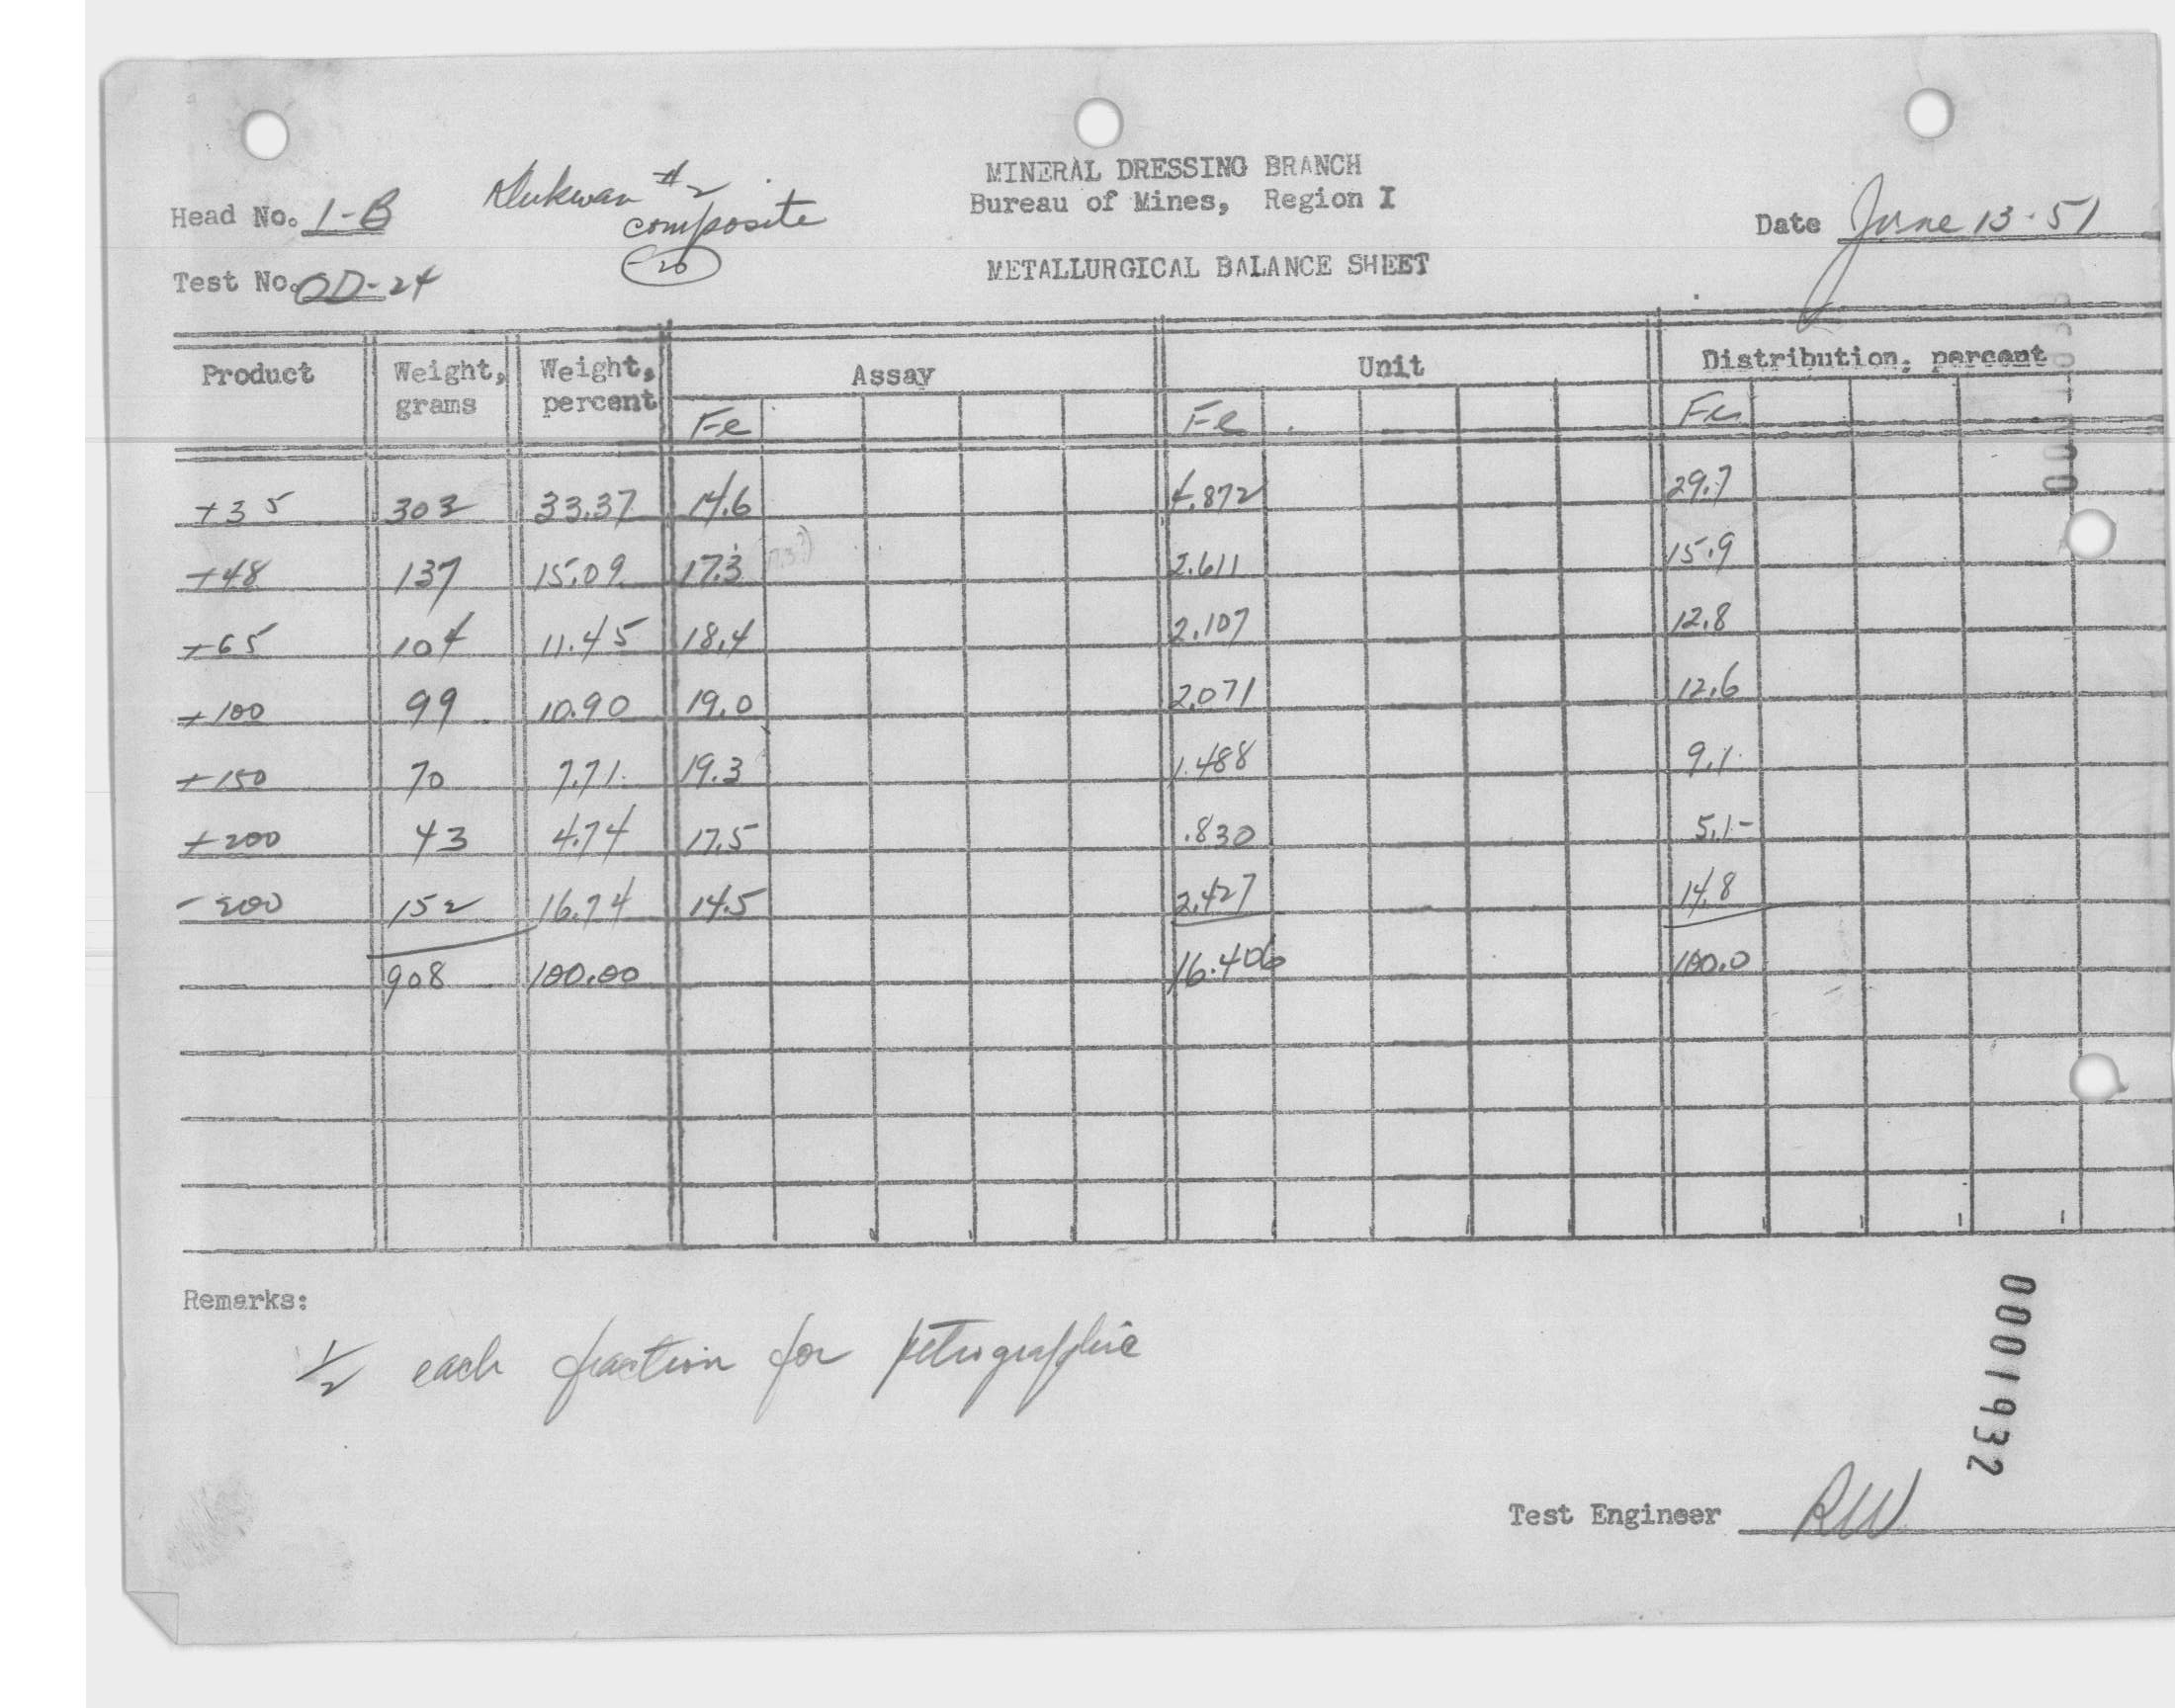 MINERAL DRESSING BRANCH
Bureau of Mines, Region I
METALLURGICAL BALANCE SHEET
Head No. 1-B
Klukwan #2
composite
-20
Date June 13-51
Test No. OD-24
Product Weight, grams Weight, percent Assay Unit Distribution, percent
Fe Fe Fe
+35 303 33.37 14.6 4.872 29.7
+48 137 15.09 17.3 2.611 15.9
+65 104 11.45 18.4 2.107 12.8
+100 99 10.90 19.0 2.071 12.6
+150 70 7.71 19.3 1.488 9.1
+200 43 4.74 17.5 .830 5.1-
-200 152 16.74 14.5 2.427 14.8
908 100.00 16.406 100.0
Remarks:
1/2 each fraction for petrographic
0001932
Test Engineer RW